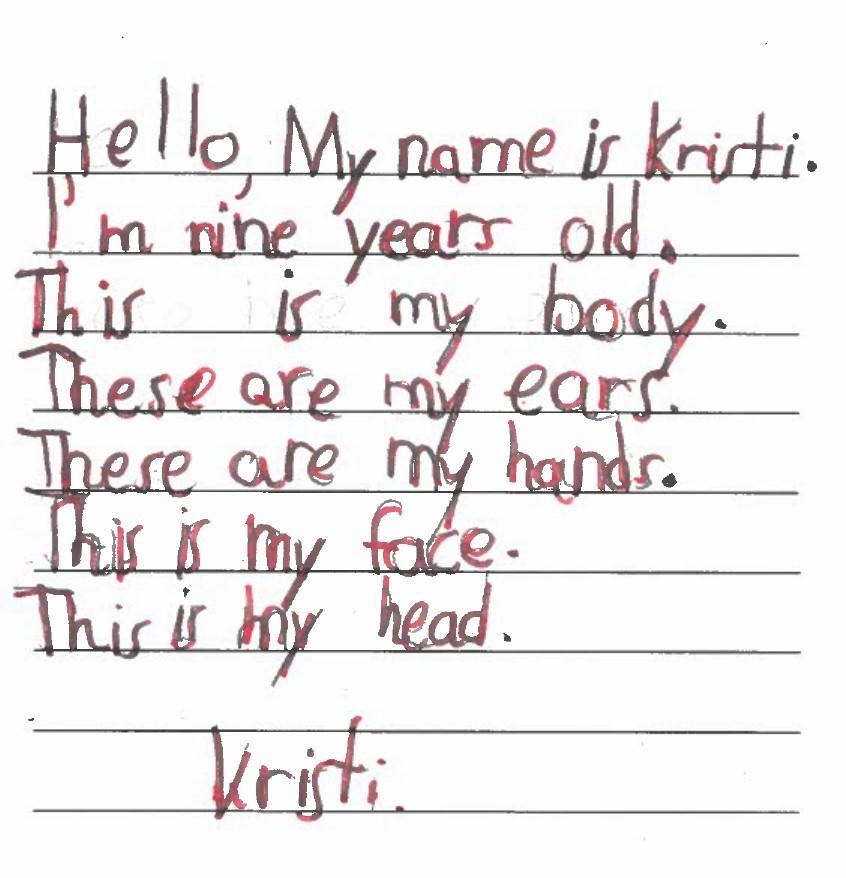 Hello, My name is Kristi.
I'm nine years old.
This is my body.
These are my ears.
These are my hands.
This is my face.
This is my head.
Kristi.